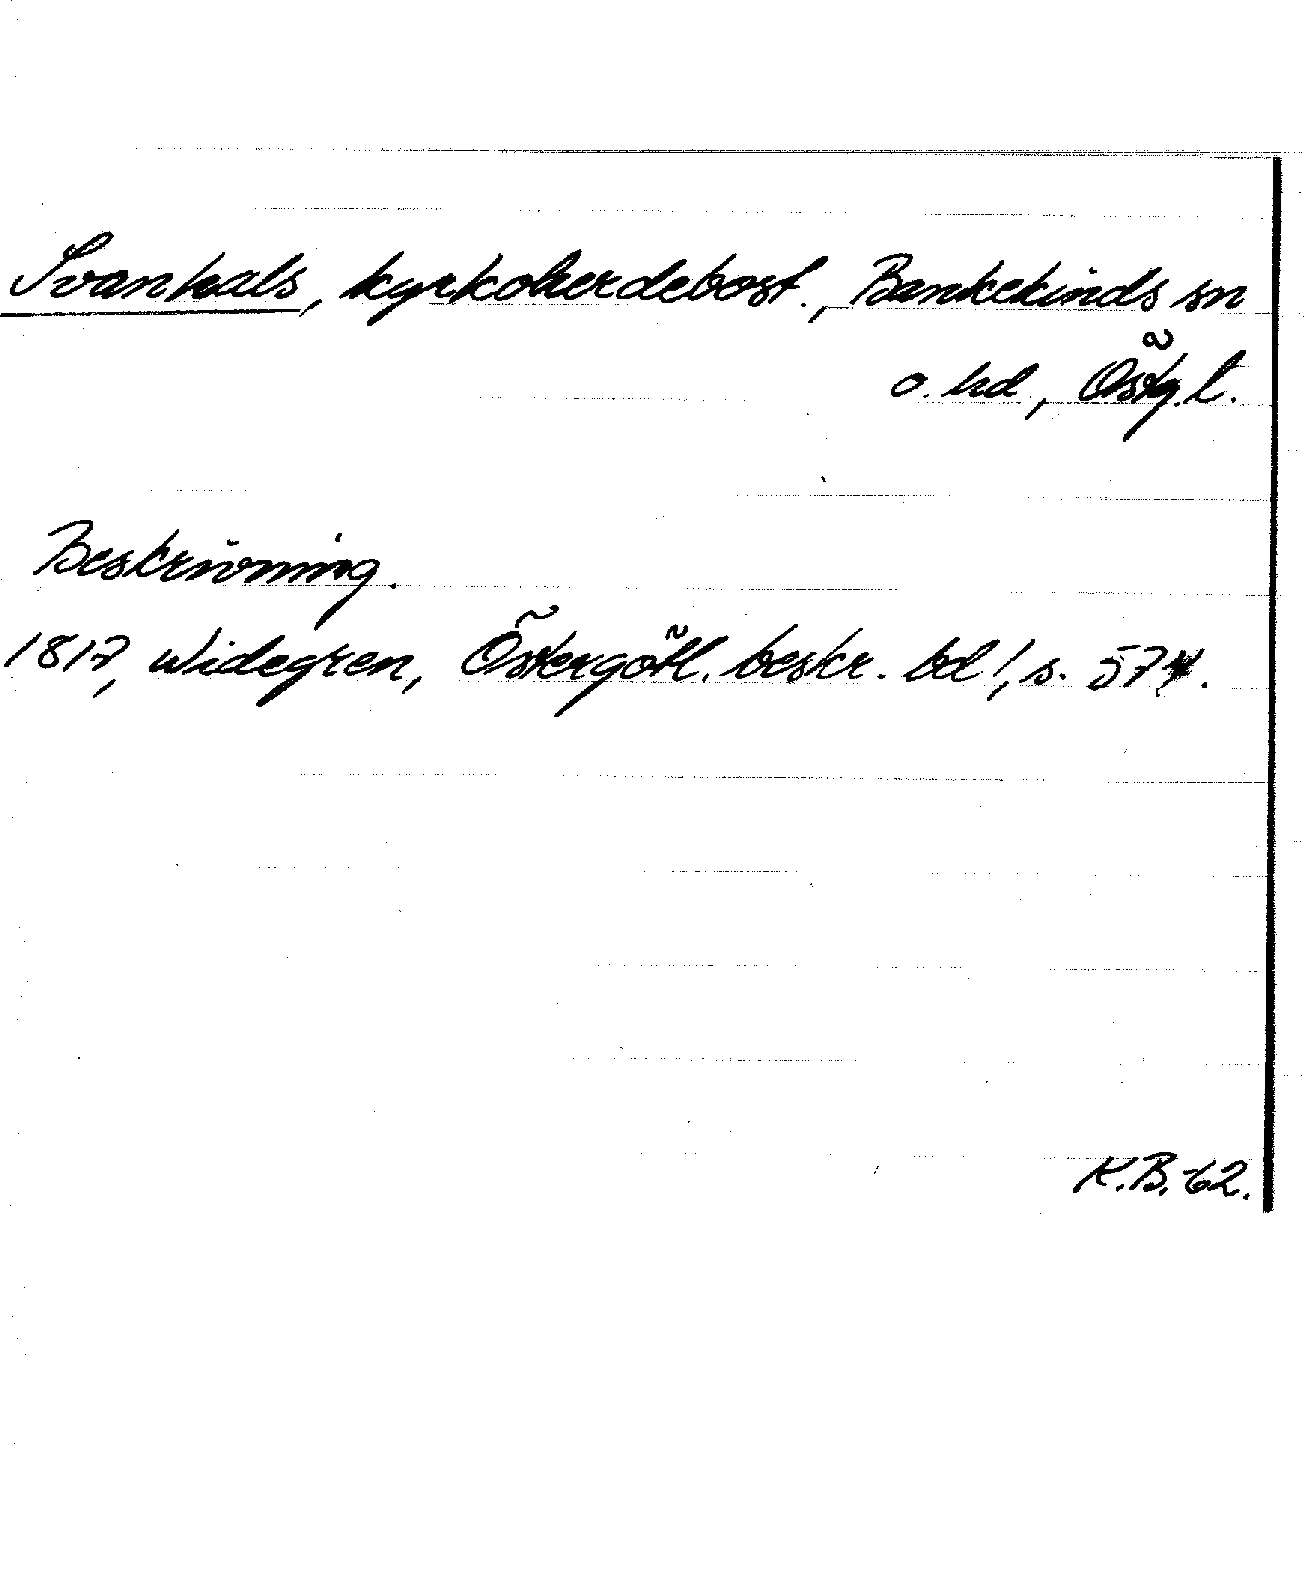 Svanhals, kyrkoherdebost., Bankekinds sn
o. hd, Östg.l.
Beskrivning.
1817, Widegren, Östergötl. beskr. bd 1, s. 574.
K.B. 62.